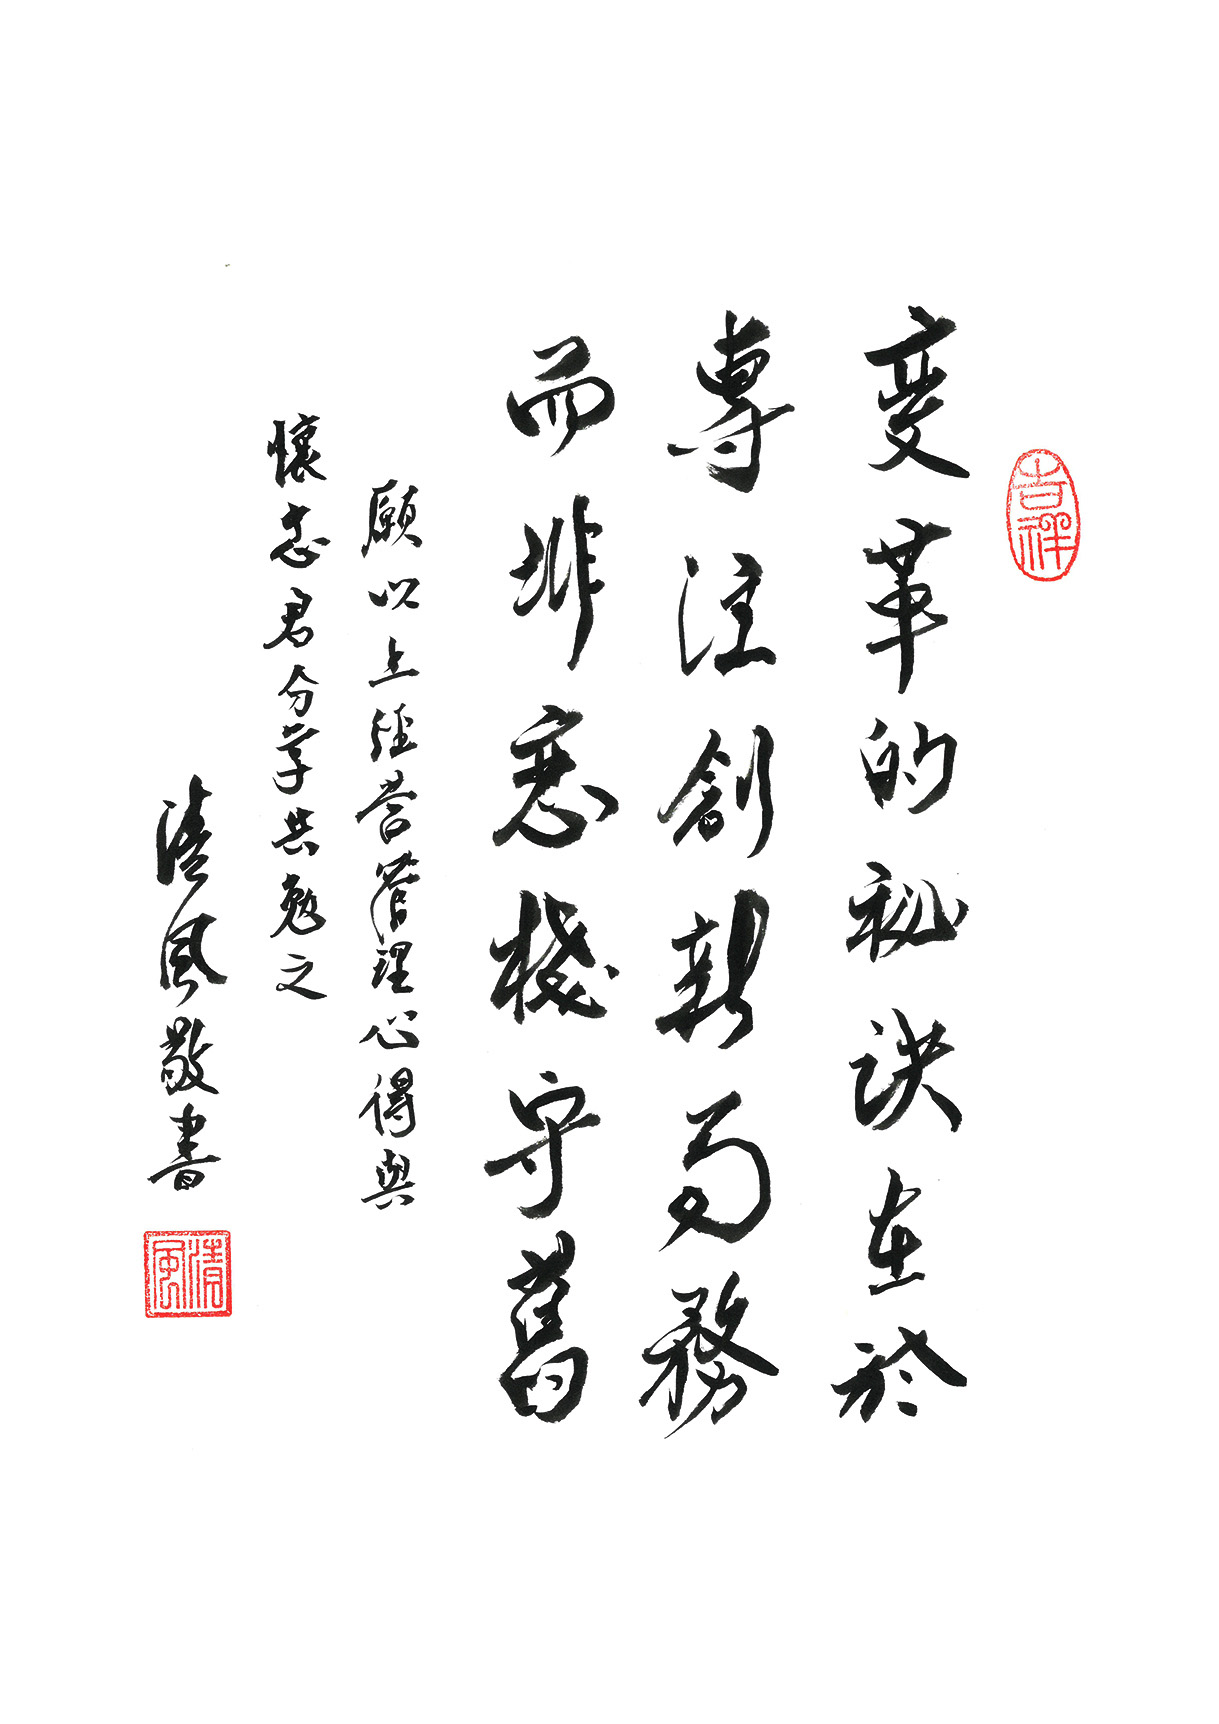 吉祥
变革的秘訣在於
專注創新為務
而非恋棧守舊
願以上經營管理心得與
懷志君分享共勉之
清風敬書
清風